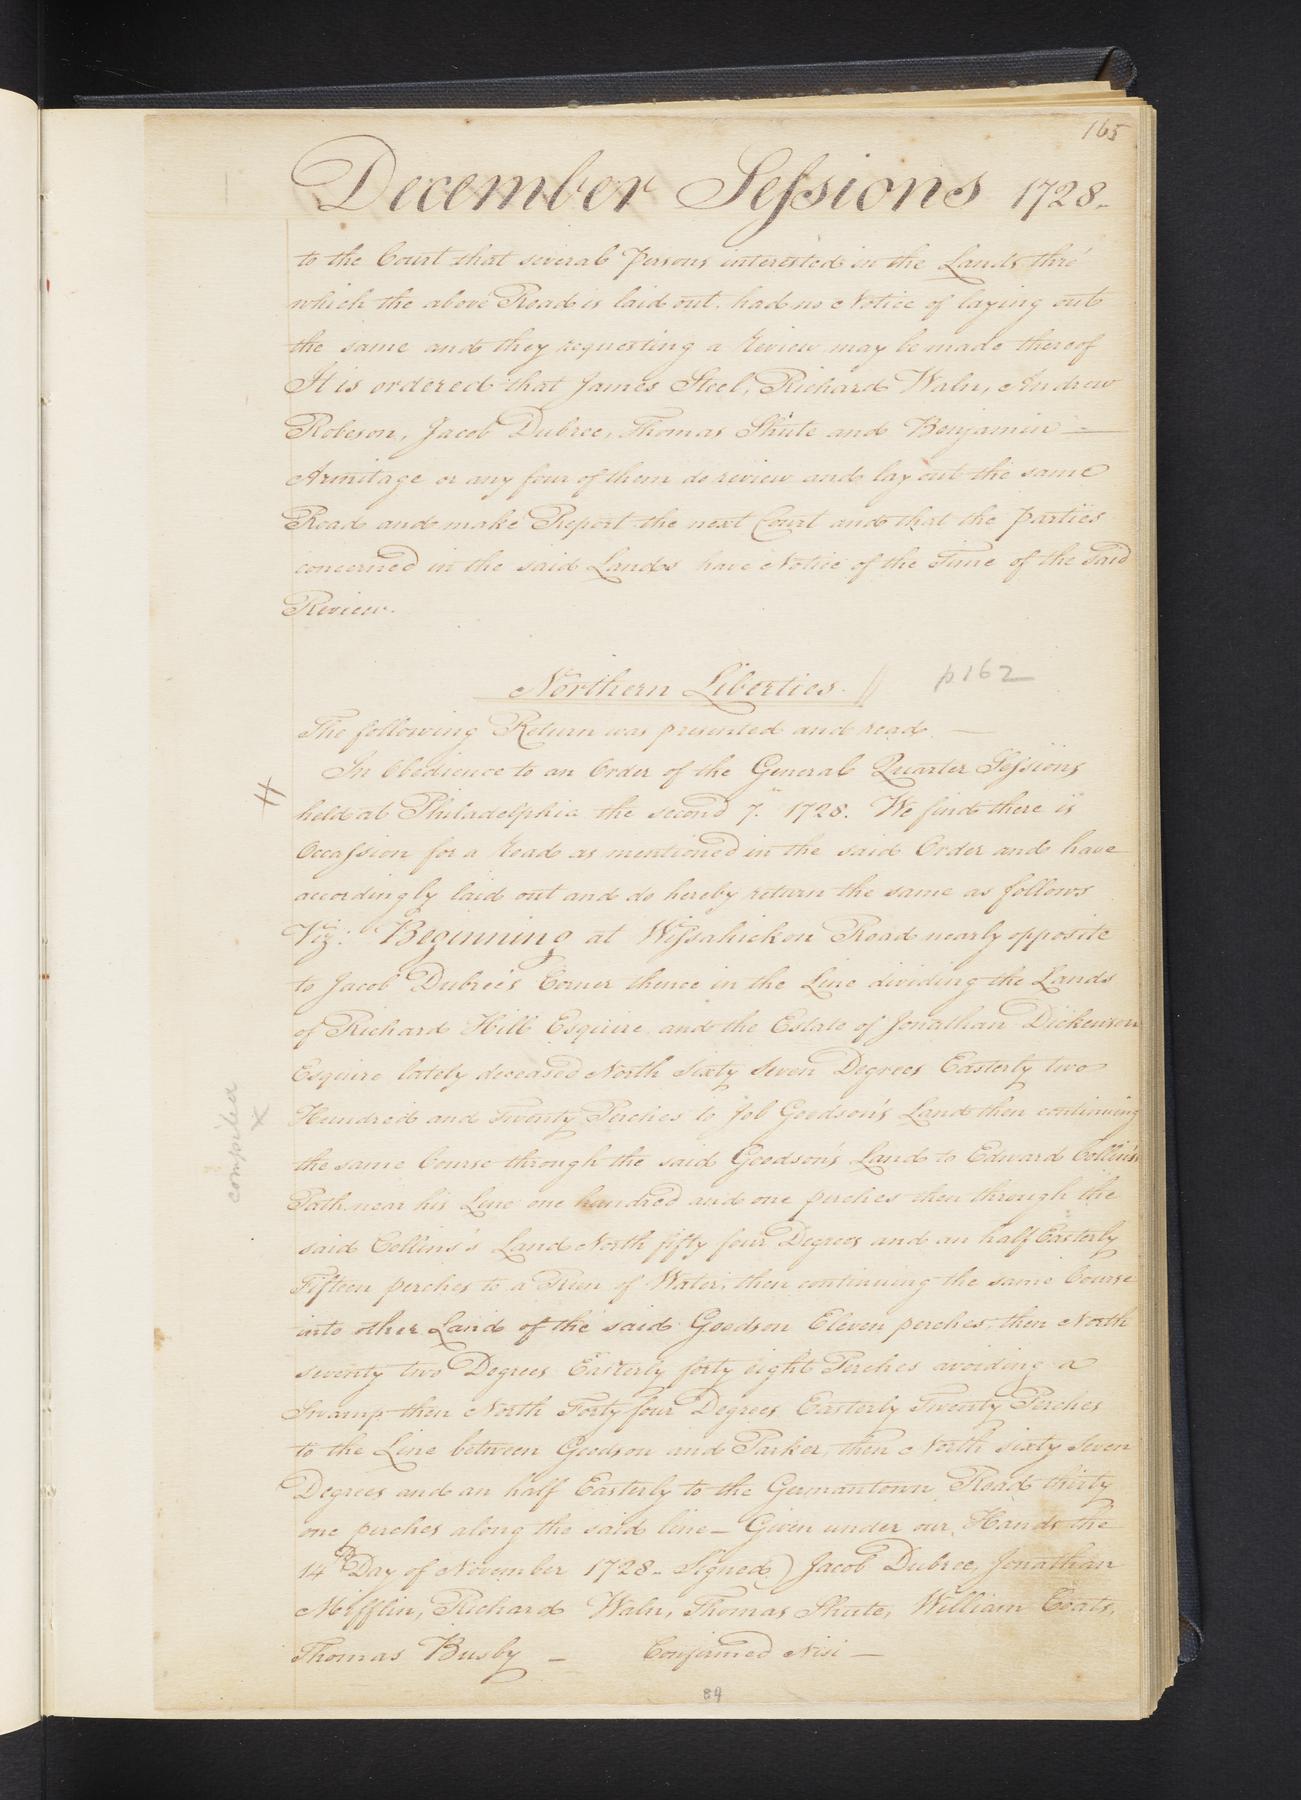 165
December Sessions 1728.
to the Court that several Persons interested in the Lands thro'
which the above Road is laid out, had no Notice of laying out
the same and they requesting a Review may be made thereof
It is ordered that James Steel, Richard Waln, Andrew
Robeson, Jacob Dubree, Thomas Shute and Benjamin
Armitage or any four of them do review and lay out the same
Road and make Report the next Court and that the Parties
concerned in the said Lands have Notice of the Time of the said
Review.
Northern Liberties. p162
The following Return was presented and read. —
In Obedience to an Order of the General Quarter Sessions
held at Philadelphia the second 7." 1728. We find there is
Occassion for a Road as mentioned in the said Order and have
accordingly laid out and do hereby return the same as follows
Viz: Beginning at Wissahickon Road nearly opposite
to Jacob Dubree's Corner thence in the Line dividing the Lands
of Richard Hill Esquire and the Estate of Jonathan Dickenson
Esquire lately deceased North Sixty Seven Degrees Easterly two
Hundred and Twenty Perches to Job Goodson's Land then continuing
the same Course through the said Goodson's Land to Edward Collins's
Path near his Line one hundred and one perches then through the
said Collins's Land North fifty four Degrees and an half Easterly
Fifteen perches to a Run of Water, then continuing the same Course
into other Land of the said Goodson Eleven perches, then North
seventy two Degrees Easterly forty eight Perches avoiding a
Swamp then North Forty four Degrees Easterly Twenty Perches
to the Line between Goodson and Parker, then North sixty Seven
Degrees and an half Easterly to the Germantown Road thirty
one perches along the said line — Given under our Hands the
14th Day of November 1728. Signed) Jacob Dubree, Jonathan
Mifflin, Richard Waln, Thomas Shute, William Coats,
Thomas Busby — Confirmed Nisi —
compiled
x
84